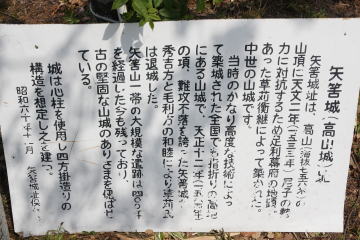 矢筈城(高山城)跡
矢筈城址は、高山(海抜七五六米)の
山頂に天文二年(一五三三年)尼子の勢
力に対抗するため足利幕府の地頭で
あった草苅衡継によって築かれた。
中世の山城です。
当時のかなり高度な技術によっ
て築城された全国でも指折りの高地
にある山城で、天正十二年(一五八四年)
の頃、難攻不落を誇った矢筈城も
秀吉方と毛利方の和睦により草苅氏
は退城した。
矢筈山一帯の大規模な遺跡は四〇〇年
を経過した今も残っており
古の堅固な山城のありさまを偲ばせ
ている。
城は心柱を使用し四方掛造りの
構造を想定し之を建つ。
昭和六十年十一月
矢筈城保存会